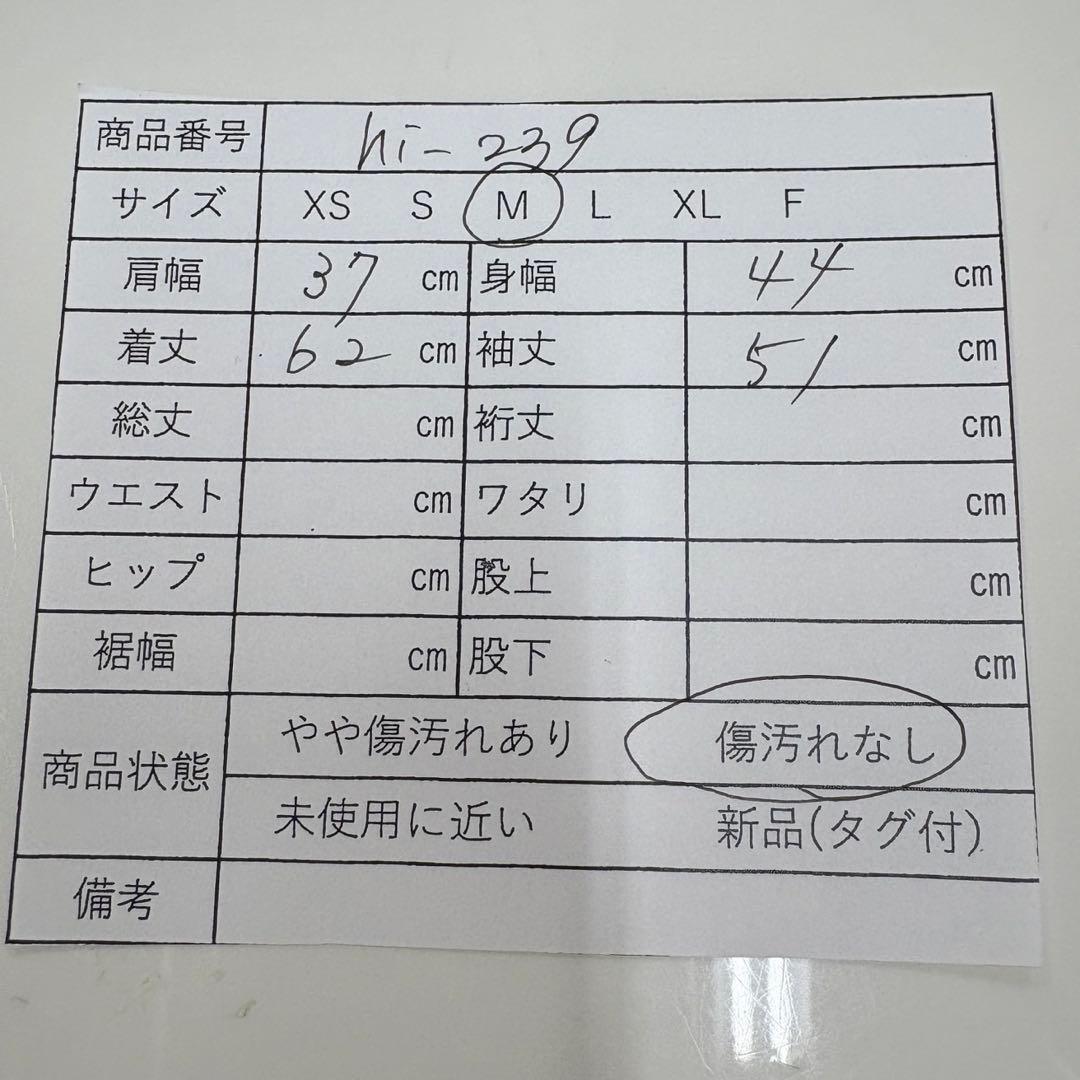 商品番号 hi-239
サイズ XS S M L XL F
肩幅 37 cm 身幅 44 cm
着丈 62 cm 袖丈 51 cm
総丈 cm 裄丈 cm
ウエスト cm ワタリ cm
ヒップ cm 股上 cm
裾幅 cm 股下 cm
商品状態 やや傷汚れあり 傷汚れなし
未使用に近い 新品(タグ付)
備考